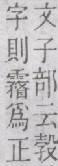 文子部云瞉
字則霿爲正